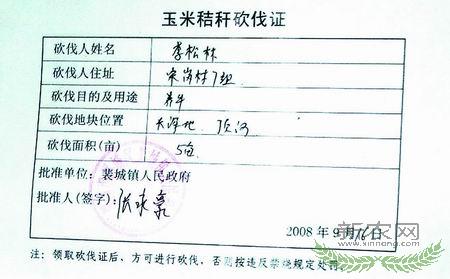 玉米秸秆砍伐证
砍伐人姓名 李松林
砍伐人住址 宋岗村7组
砍伐目的及用途 养牛
砍伐地块位置
砍伐面积(亩) 5亩
批准单位:裴城镇人民政府
批准人(签字):
2008年9月16日
注:领取砍伐证后、方可进行砍伐、否则按违反禁烧规定处罚。
新农网
www.xinnong.com